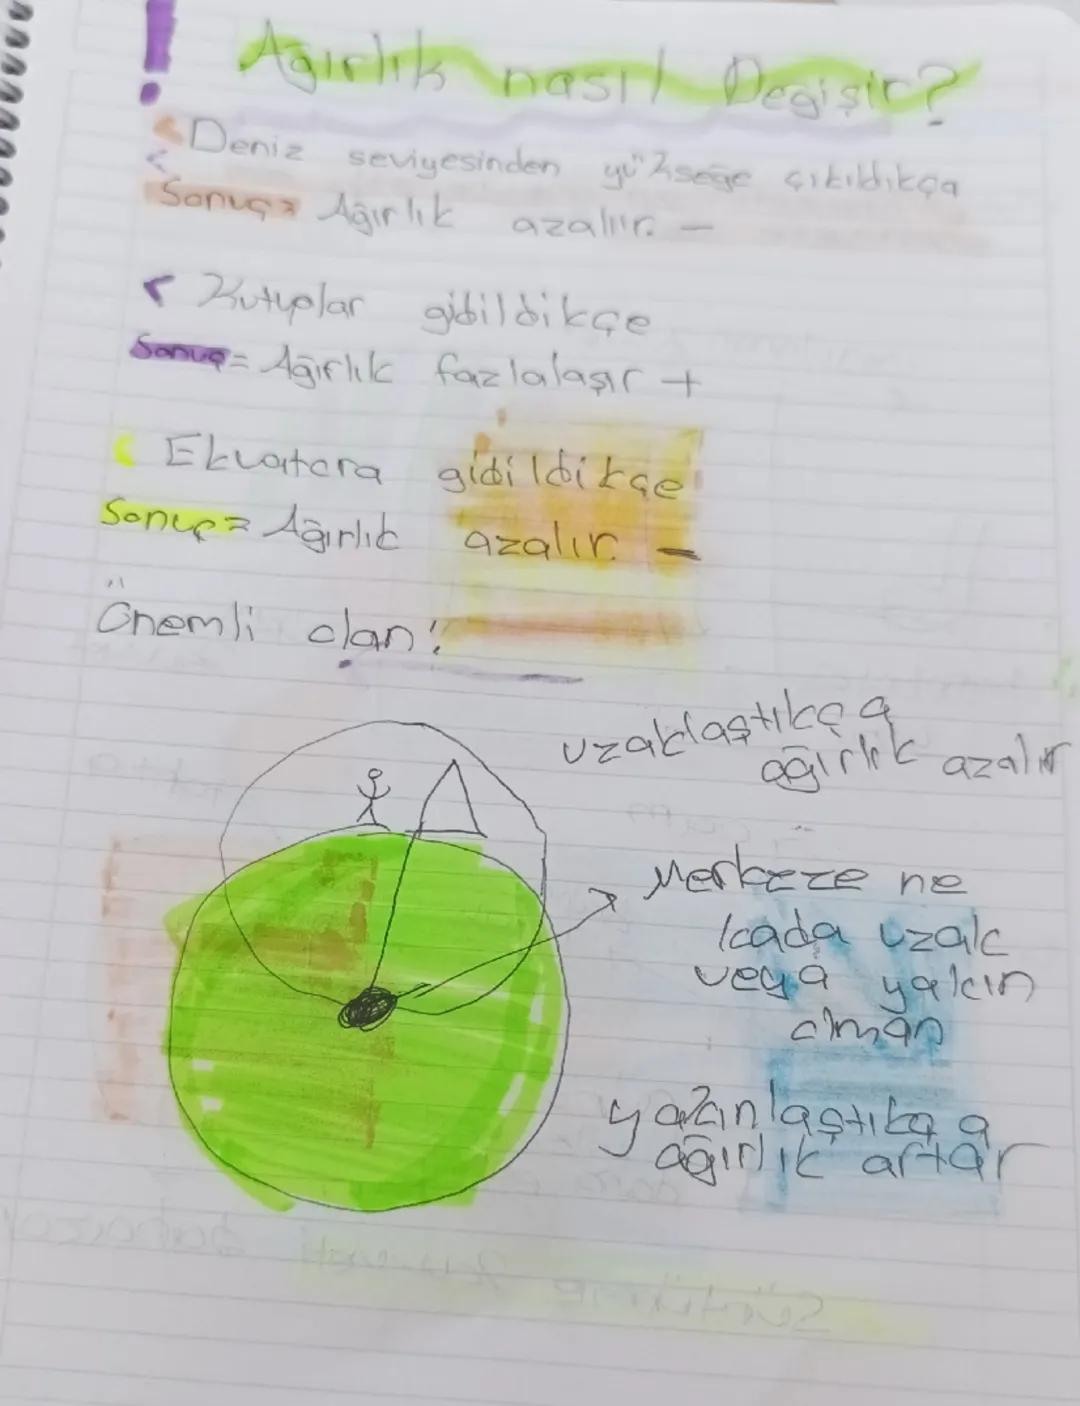 ! Ağırlık nasıl Değişir?
< Deniz seviyesinden yükseğe çıkıldıkça
< Sonuç = Ağırlık azalır. -
< Kutuplar gidildikçe
Sonuç = Ağırlık fazlalaşır +
< Ekvatora gidildikçe
Sonuç = Ağırlık azalır. -
Önemli olan!
uzaklaştıkça
ağırlık azalır
Merkeze ne
kada uzak
veya yakın
olman
yakınlaştıkça
ağırlık artar